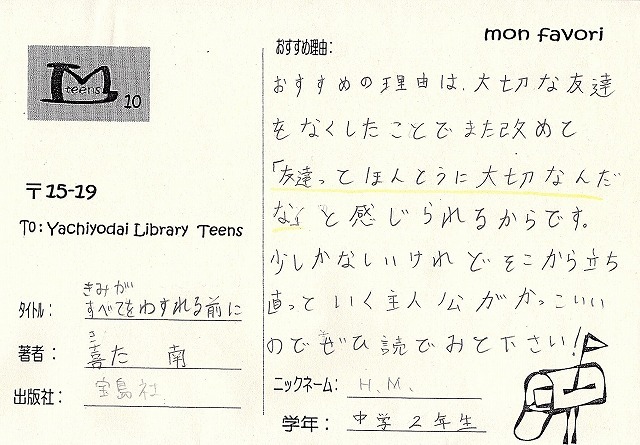 M
teens
10
〒15-19
TO: Yachiyodai Library Teens
タイトル:
きみが
すべてをわすれる前に
著者:
こ
喜た 南
出版社:
宝島社
mon favori
おすすめ理由:
おすすめの理由は、大切な友達
をなくしたことでまた改めて
「友達ってほんとうに大切なんだ
な」と感じられるからです。
少しかなしいけれどそこから立ち
直っていく主人公がかっこいい
のでぜひ読でみと下さい!
ニックネーム: H.M.
学年: 中学2年生